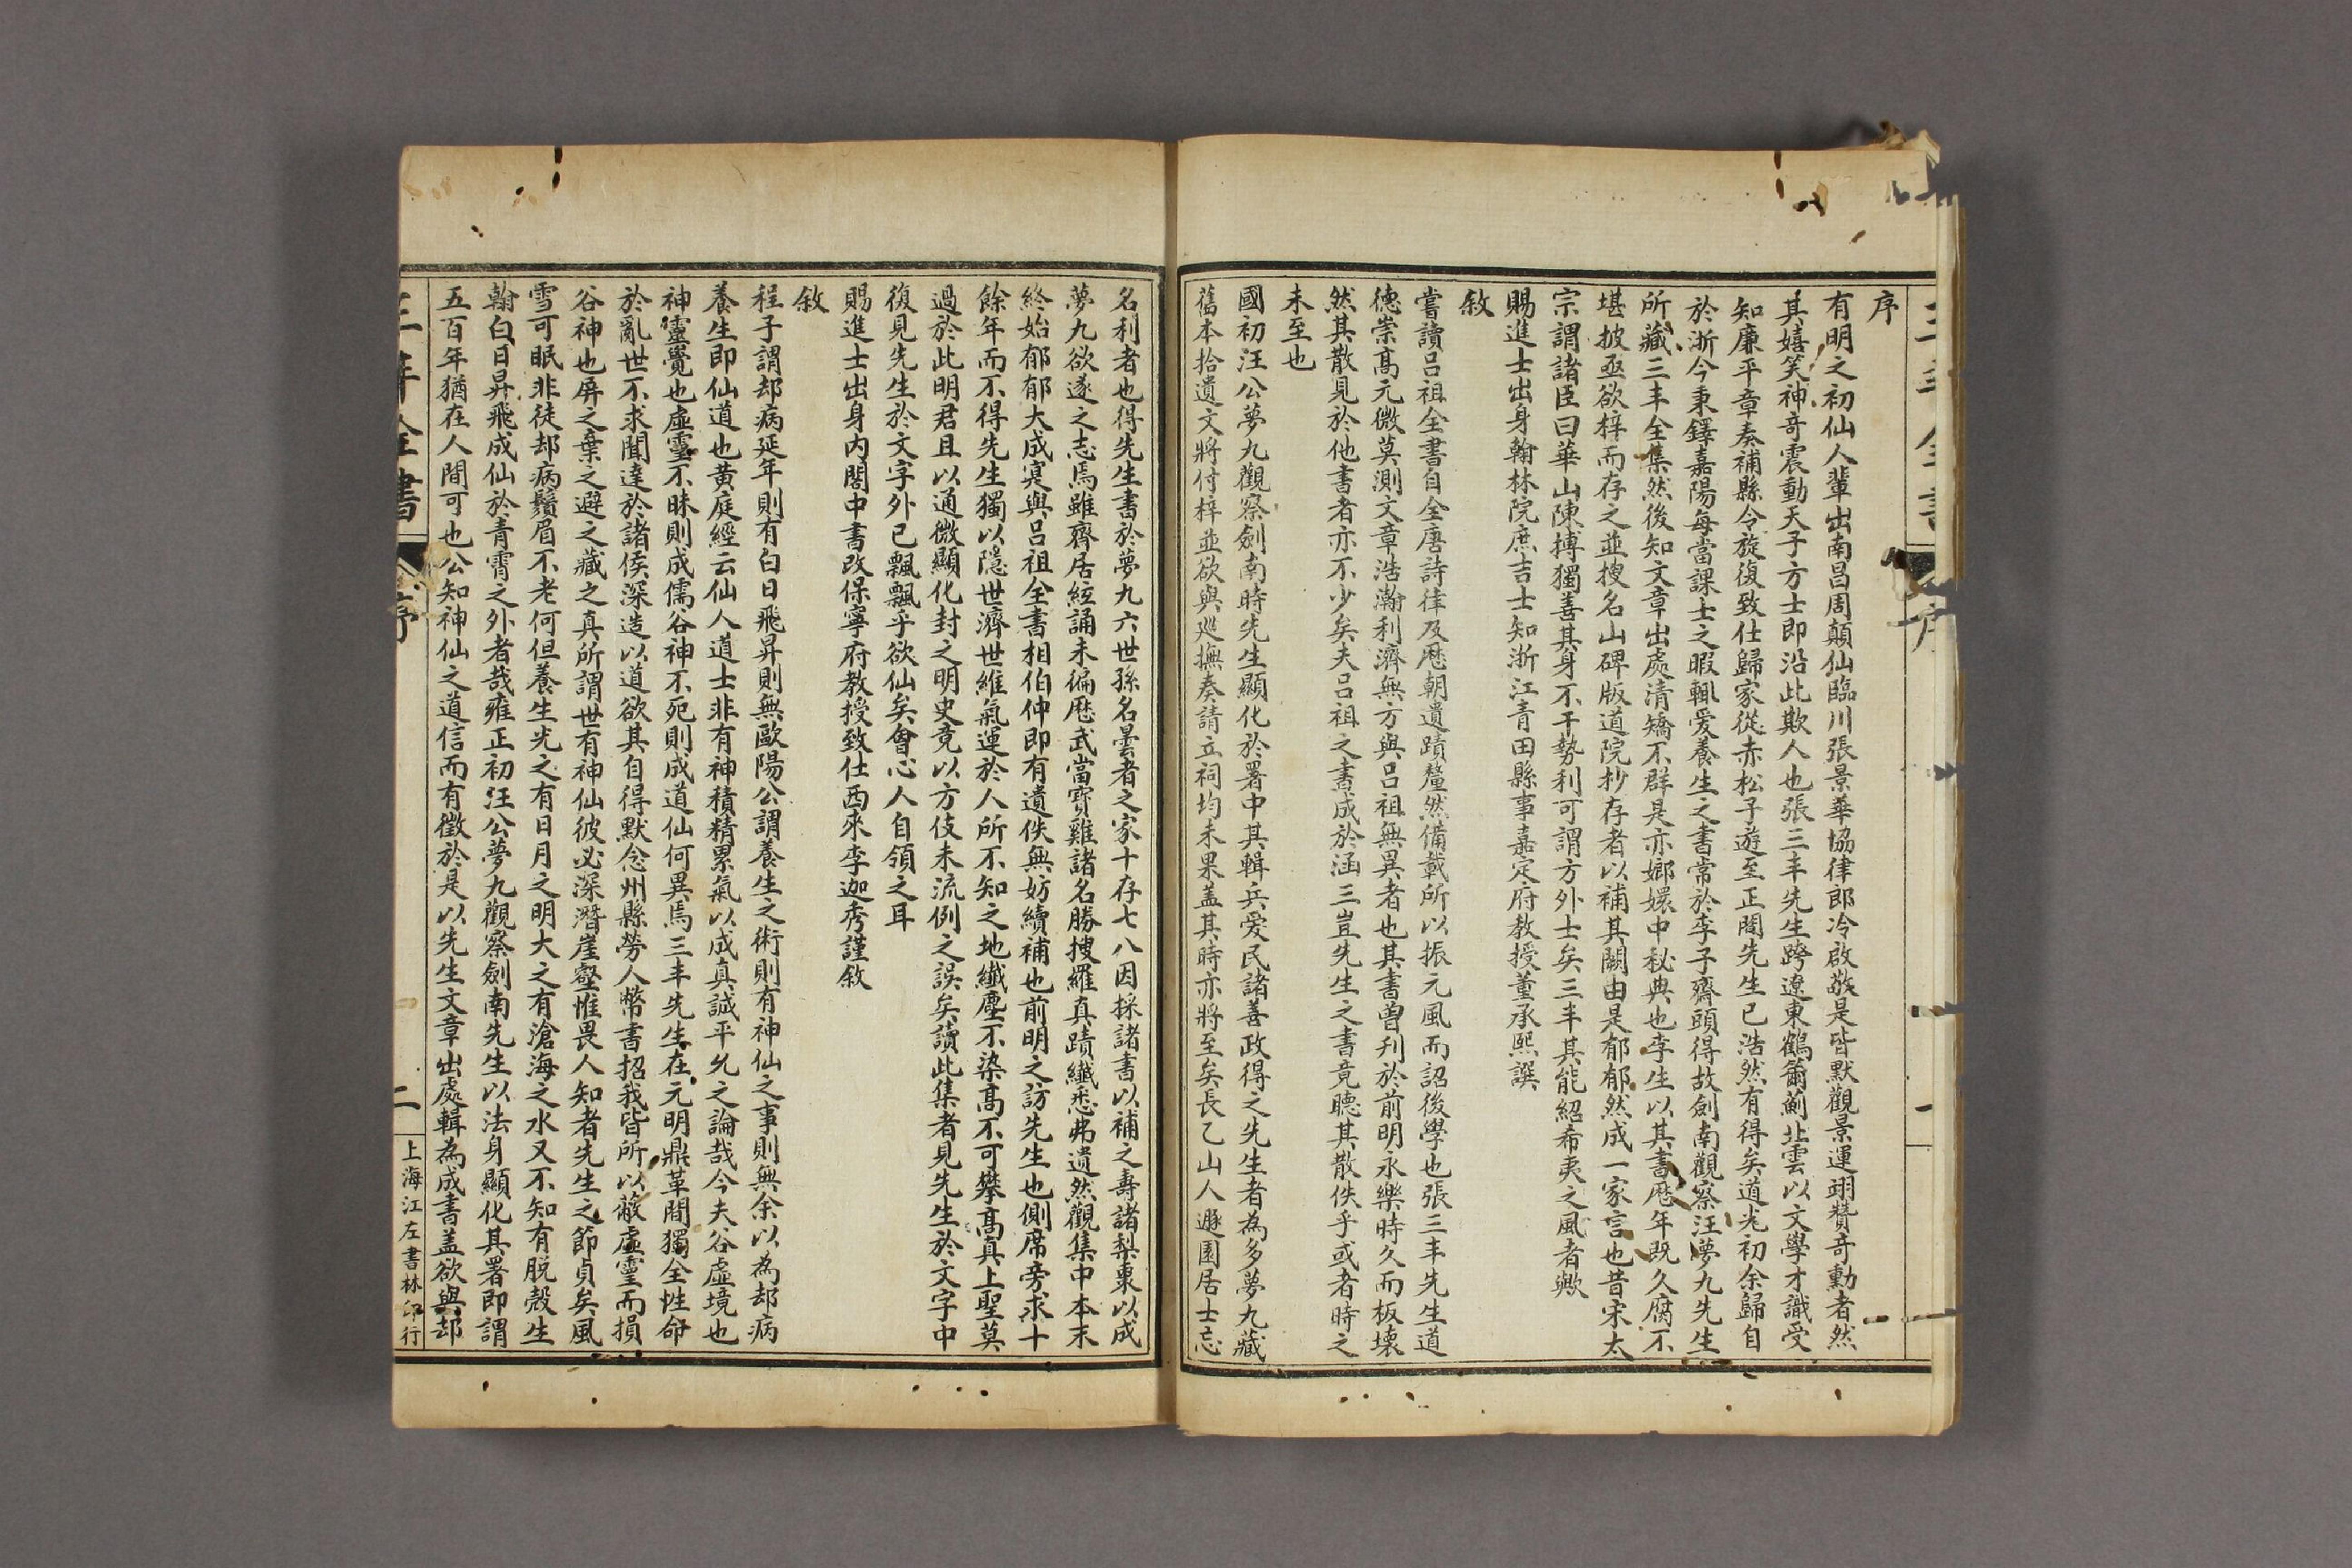 三丰全書
序
一
序
有明之初仙人輩出南昌周顛仙臨川張景華協律郎冷啟敬是皆默觀景運翊贊奇勳者然
其嬉笑神奇震動天子方士即沿此欺人也張三丰先生跨遼東鶴籋薊北雲以文學才識受
知廉平章奏補縣令旋復致仕歸家從赤松子遊至正間先生已浩然有得矣道光初余歸自
於浙今秉鐸嘉陽每當課士之暇輒爰養生之書常於李子齋頭得故劍南觀察汪夢九先生
所藏三丰全集然後知文章出處清矯不群是亦嫏嬛中秘典也李生以其書歷年既久腐不
堪披亟欲梓而存之並搜名山碑版道院抄存者以補其闕由是郁郁然成一家言也昔宋太
宗謂諸臣曰華山陳摶獨善其身不干勢利可謂方外士矣三丰其能紹希夷之風者歟
賜進士出身翰林院庶吉士知浙江青田縣事嘉定府教授董承熙譔
敘
嘗讀呂祖全書自全唐詩律及歷朝遺蹟釐然備載所以振元風而詔後學也張三丰先生道
德崇高元微莫測文章浩瀚利濟無方與呂祖無異者也其書曾刋於前明永樂時久而板壞
然其散見於他書者亦不少矣夫呂祖之書成於涵三豈先生之書竟聽其散佚乎或者時之
未至也
國初汪公夢九觀察劍南時先生顯化於署中其輯兵爱民諸善政得之先生者為多夢九藏
舊本拾遺文將付梓並欲與廵撫奏請立祠均未果盖其時亦將至矣長乙山人遯園居士忘
名利者也得先生書於夢九六世孫名曇者之家十存七八因採諸書以補之壽諸梨棗以成
夢九欲遂之志焉雖齋居絃誦未徧歷武當寶雞諸名勝搜羅真蹟纖悉弗遺然觀集中本末
終始郁郁大成寔與呂祖全書相伯仲即有遺佚無妨續補也前明之訪先生也側席旁求十
餘年而不得先生獨以隱世濟世維氣運於人所不知之地纖塵不染高不可攀高真上聖莫
過於此明君且以通微顯化封之明史竟以方伎未流例之誤矣讀此集者見先生於文字中
復見先生於文字外已飄飄乎欲仙矣會心人自領之耳
賜進士出身内閣中書改保寧府教授致仕西來李迦秀謹敘
敘
程子謂却病延年則有白日飛昇則無歐陽公謂養生之術則有神仙之事則無余以為却病
養生即仙道也黄庭經云仙人道士非有神積精累氣以成真誠平允之論哉今夫谷虛境也
神靈覺也虛靈不昧則成儒谷神不死則成道仙何異焉三丰先生在元明鼎革間獨全性命
於亂世不求聞達於諸侯深造以道欲其自得默念州縣勞人幣書招我皆所以蔽虛靈而損
谷神也屏之棄之避之藏之真所謂世有神仙彼必深潛崖壑惟畏人知者先生之節貞矣風
雪可眠非徒却病鬚眉不老何但養生光之有日月之明大之有滄海之水又不知有脱殼生
翰白日昇飛成仙於青霄之外者哉雍正初汪公夢九觀察劍南先生以法身顯化其署即謂
五百年猶在人間可也公知神仙之道信而有徵於是以先生文章出處輯為成書盖欲與却
三丰全書
序
二
上海江左書林印行